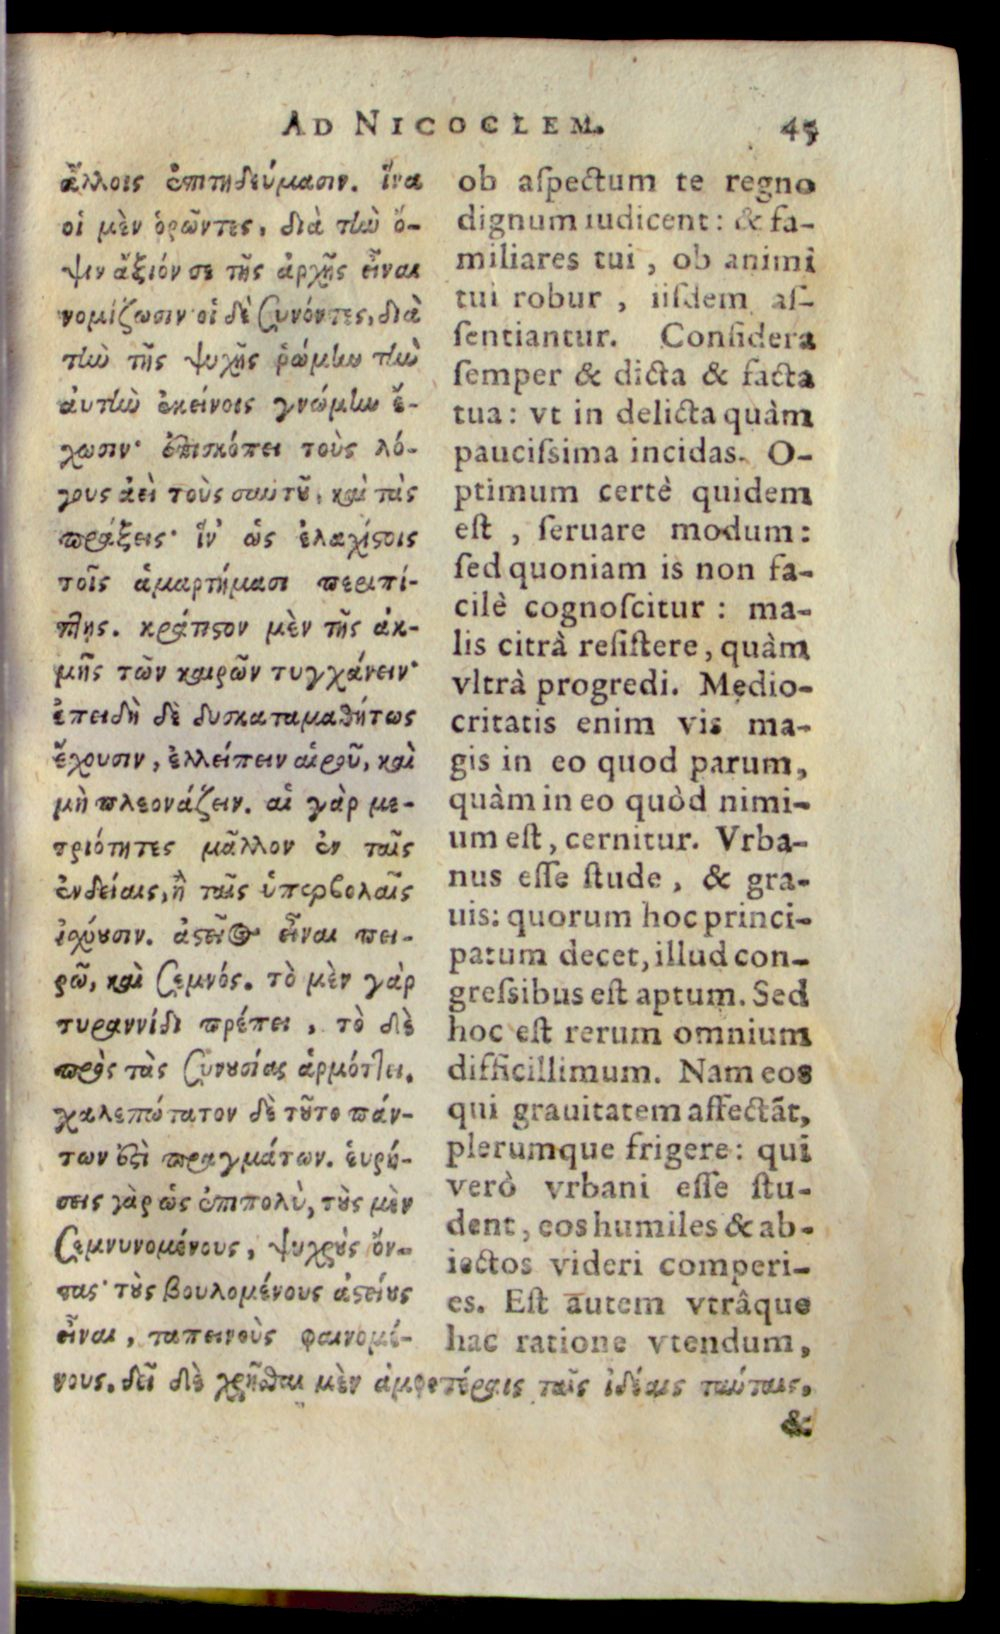 AD NICOCLEM. 45
ἄλλοις ἐπιτηδεύμασιν. ἵνα
οἱ μὲν ὁρῶντες, διὰ τὴν ὄ-
ψιν ἄξιόν σε τῆς ἀρχῆς εἶναι
νομίζωσιν· οἱ δὲ συνόντες, διὰ
τὴν τῆς ψυχῆς ῥώμην τὴν
ἀυτὴν ἐκείνοις γνώμην ἔ-
χωσιν· ἐπισκόπει τοὺς λό-
γους ἀεὶ τοὺς σαυτοῦ, καὶ τὰς
πράξεις· ἵν' ὡς ἐλαχίστοις
τοῖς ἁμαρτήμασι περιπί-
πτῃς. κράτιστον μὲν τῆς ἀκ-
μῆς τῶν καιρῶν τυγχάνειν·
ἐπειδὴ δὲ δυσκαταμαθήτως
ἔχουσιν, ἐλλείπειν αἱροῦ, καὶ
μὴ πλεονάζειν. αἱ γὰρ με-
τριότητες μᾶλλον ἐν ταῖς
ἐνδείαις, ἢ ταῖς ὑπερβολαῖς
ἰσχύουσιν. ἀστεῖος εἶναι πει-
ρῶ, καὶ σεμνός. τὸ μὲν γὰρ
τυραννίδι πρέπει, τὸ δὲ
πρὸς τὰς συνουσίας ἁρμόττει.
χαλεπώτατον δὲ τοῦτο πάν-
των ἐστὶ πραγμάτων. ἑυρή-
σεις γὰρ ὡς ἐπιπολὺ, τοὺς μὲν
σεμνυνομένους, ψυχροὺς ὄν-
τας· τοὺς βουλομένους ἀστείους
εἶναι, ταπεινοὺς φαινομέ-
νους. δεῖ δὲ χρῆσθαι μὲν ἀμφοτέραις ταῖς ἰδέαις ταύταις,
ob aſpectum te regno
dignum iudicent: & fa-
miliares tui, ob animi
tui robur, iiſdem aſ-
ſentiantur. Conſidera
ſemper & dicta & facta
tua: vt in delicta quàm
pauciſsima incidas. O-
ptimum certè quidem
eſt, ſeruare modum:
ſed quoniam is non fa-
cilè cognoſcitur: ma-
lis citrà reſiſtere, quàm
vltrà progredi. Medio-
critatis enim vis ma-
gis in eo quod parum,
quàm in eo quòd nimi-
um eſt, cernitur. Vrba-
nus eſſe ſtude, & gra-
uis: quorum hoc princi-
patum decet, illud con-
greſsibus eſt aptum. Sed
hoc eſt rerum omnium
difficillimum. Nam eos
qui grauitatem affectāt,
plerumque frigere: qui
verò vrbani eſſe ſtu-
dent, eos humiles & ab-
iectos videri comperi-
es. Eſt autem vtrâque
hac ratione vtendum,
&